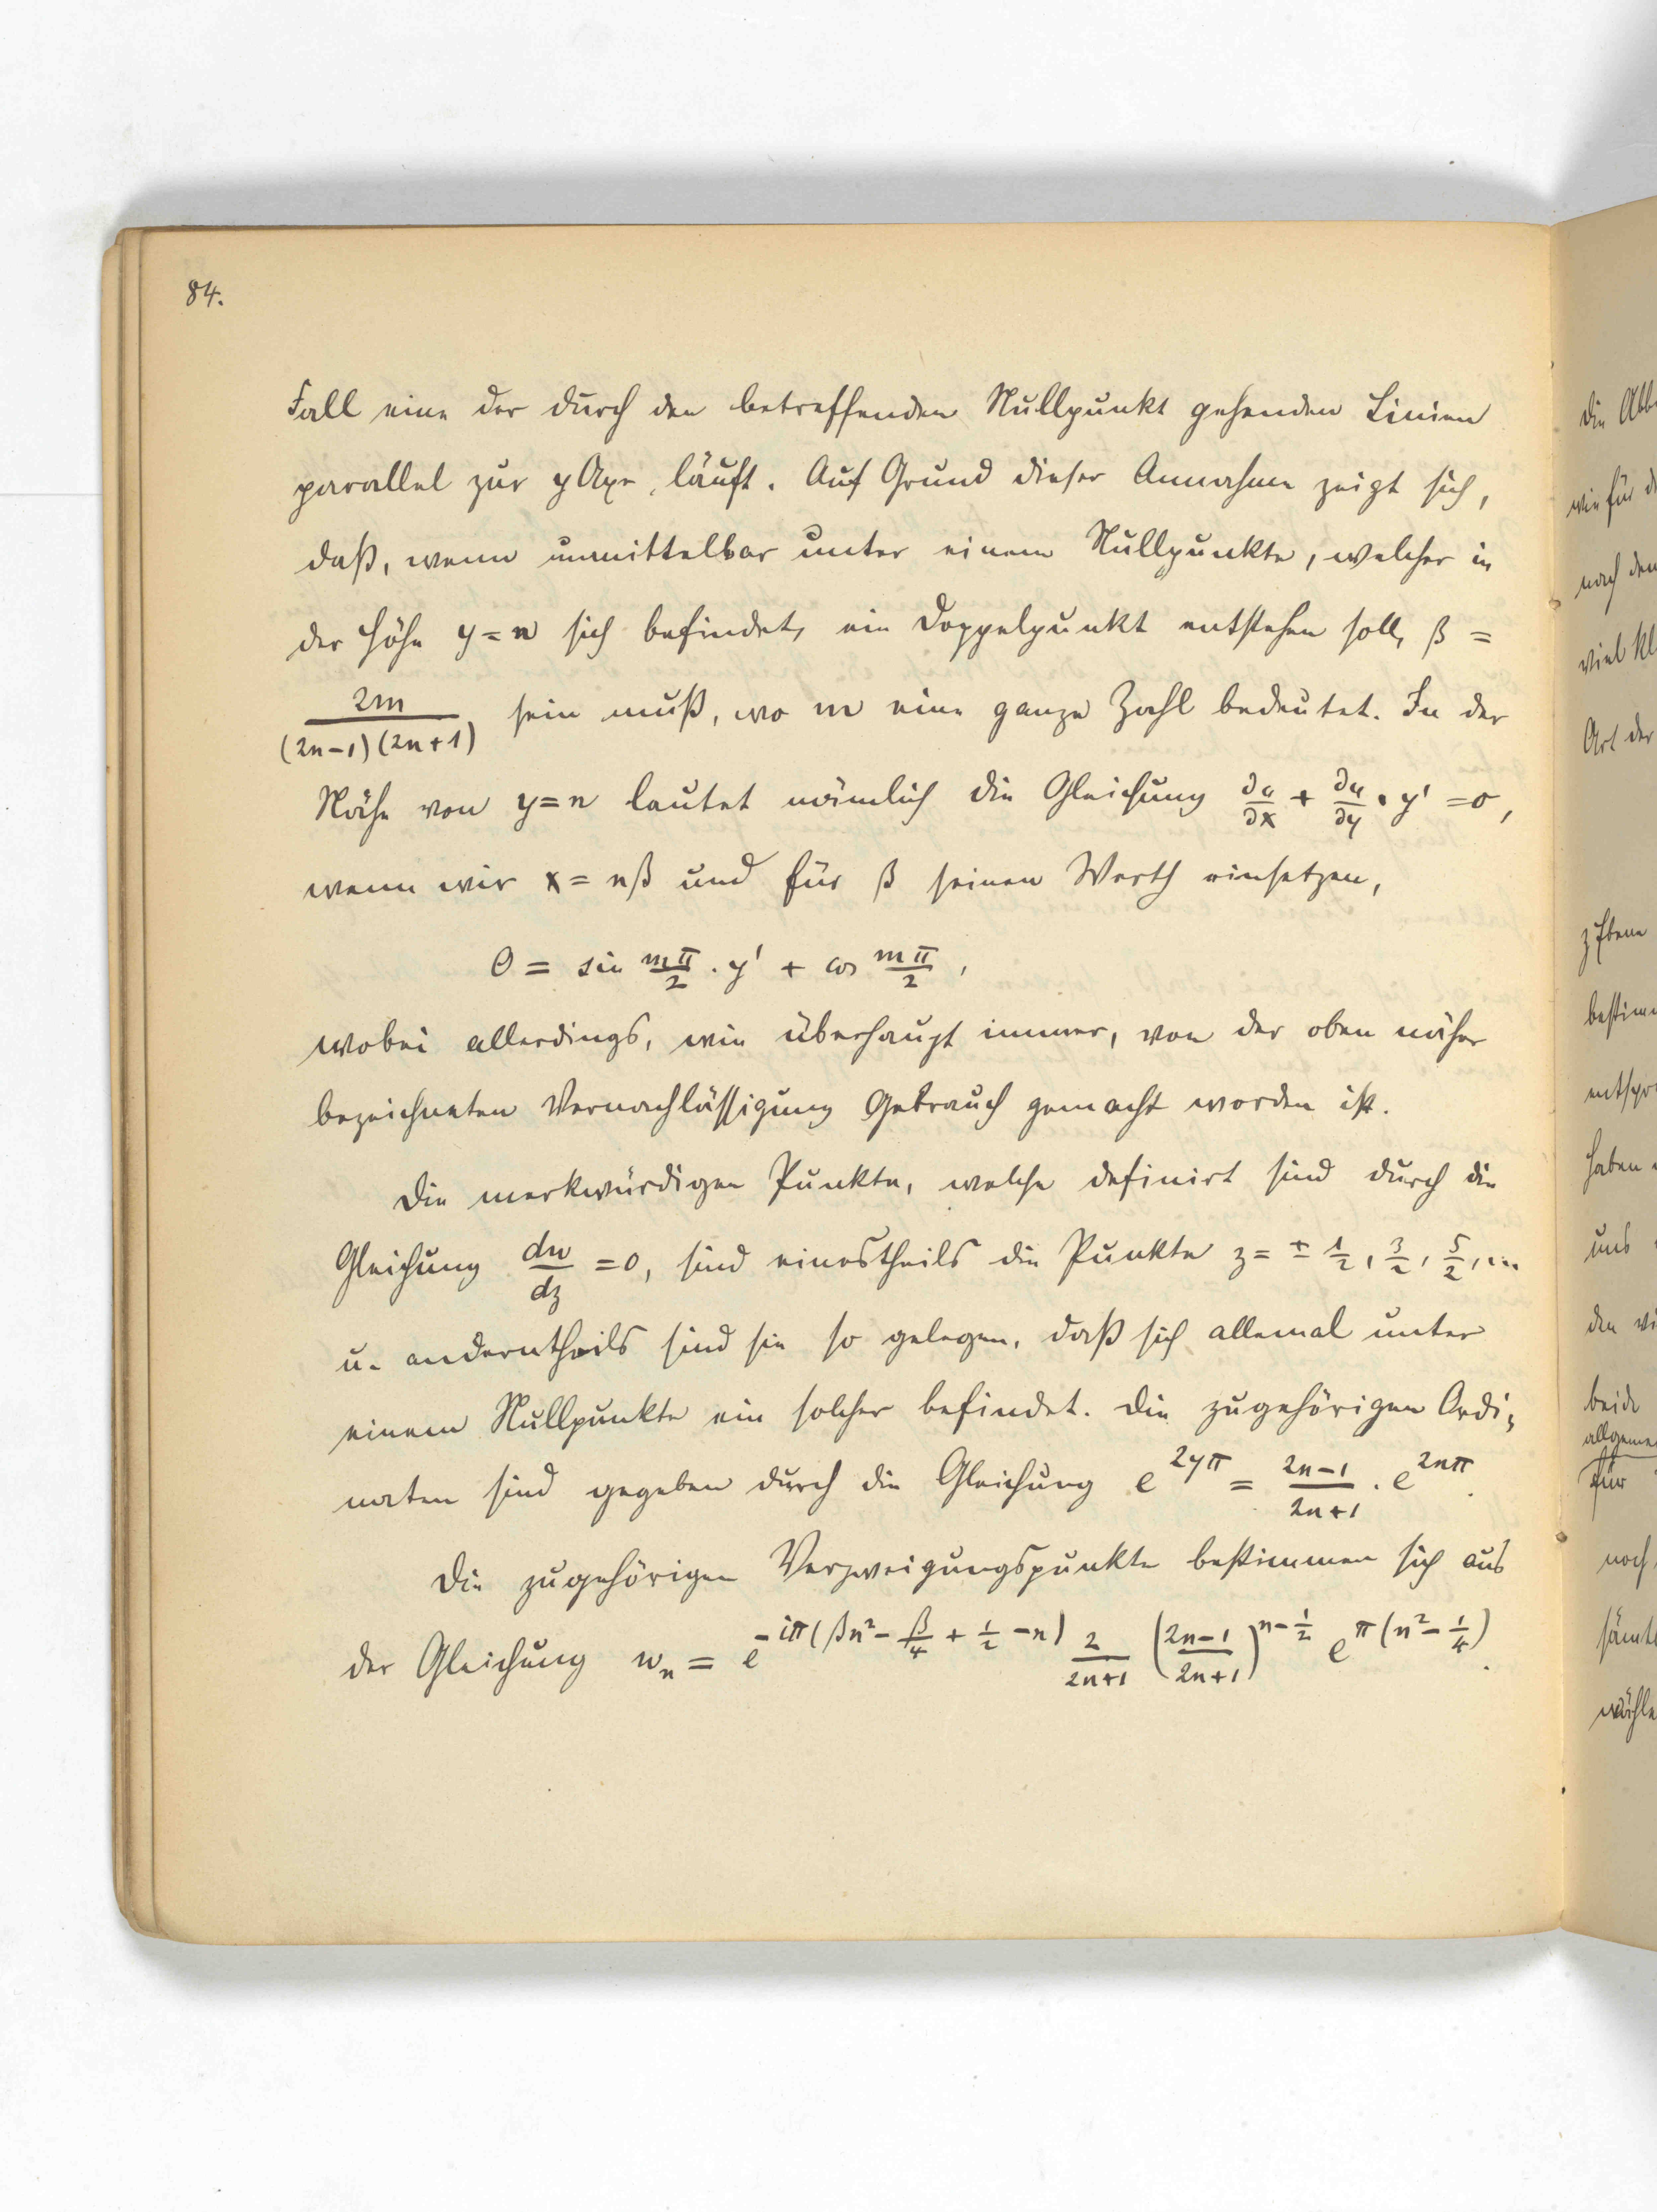 84.
Fall eine der durch den betreffenden Nullpunkt gehenden Linien
parallel zur y Axe läuft. Auf Grund dieser Annahme zeigt sich,
daß, wenn unmittelbar unter einem Nullpunkte, welcher in
der Höhe y = n sich befindet, ein Doppelpunkt entstehen soll, β =
2m/((2n-1)(2n+1)) sein muß, wo m eine ganze Zahl bedeutet. In der
Nähe von y = n lautet nämlich die Gleichung ∂u/∂x + ∂u/∂y · y' = 0,
wenn wir x = nβ und für β seinen Werth einsetzen,
0 = sin mπ/2 · y' + cos mπ/2,
wobei allerdings, wie überhaupt immer, von der oben näher
bezeichneten Vernachlässigung Gebrauch gemacht worden ist.
Die merkwürdigen Punkte, welche definirt sind durch die
Gleichung dw/dz = 0, sind einestheils die Punkte z = ± 1/2, 3/2, 5/2, ...
u. anderntheils sind sie so gelegen, daß sich allemal unter
einem Nullpunkte ein solcher befindet. Die zugehörigen Ordi-
naten sind gegeben durch die Gleichung e^{2yπ} = (2n-1)/(2n+1) · e^{2nπ}.
Die zugehörigen Verzweigungspunkte bestimmen sich aus
der Gleichung w_n = e^{-iπ(βn² - β/4 + 1/2 - n)} 2/(2n+1) ((2n-1)/(2n+1))^{n-1/2} e^{π(n² - 1/4)}.
die
wie für
nach den
viel
Art der
z Ebene
haben
uns
beide
für
noch